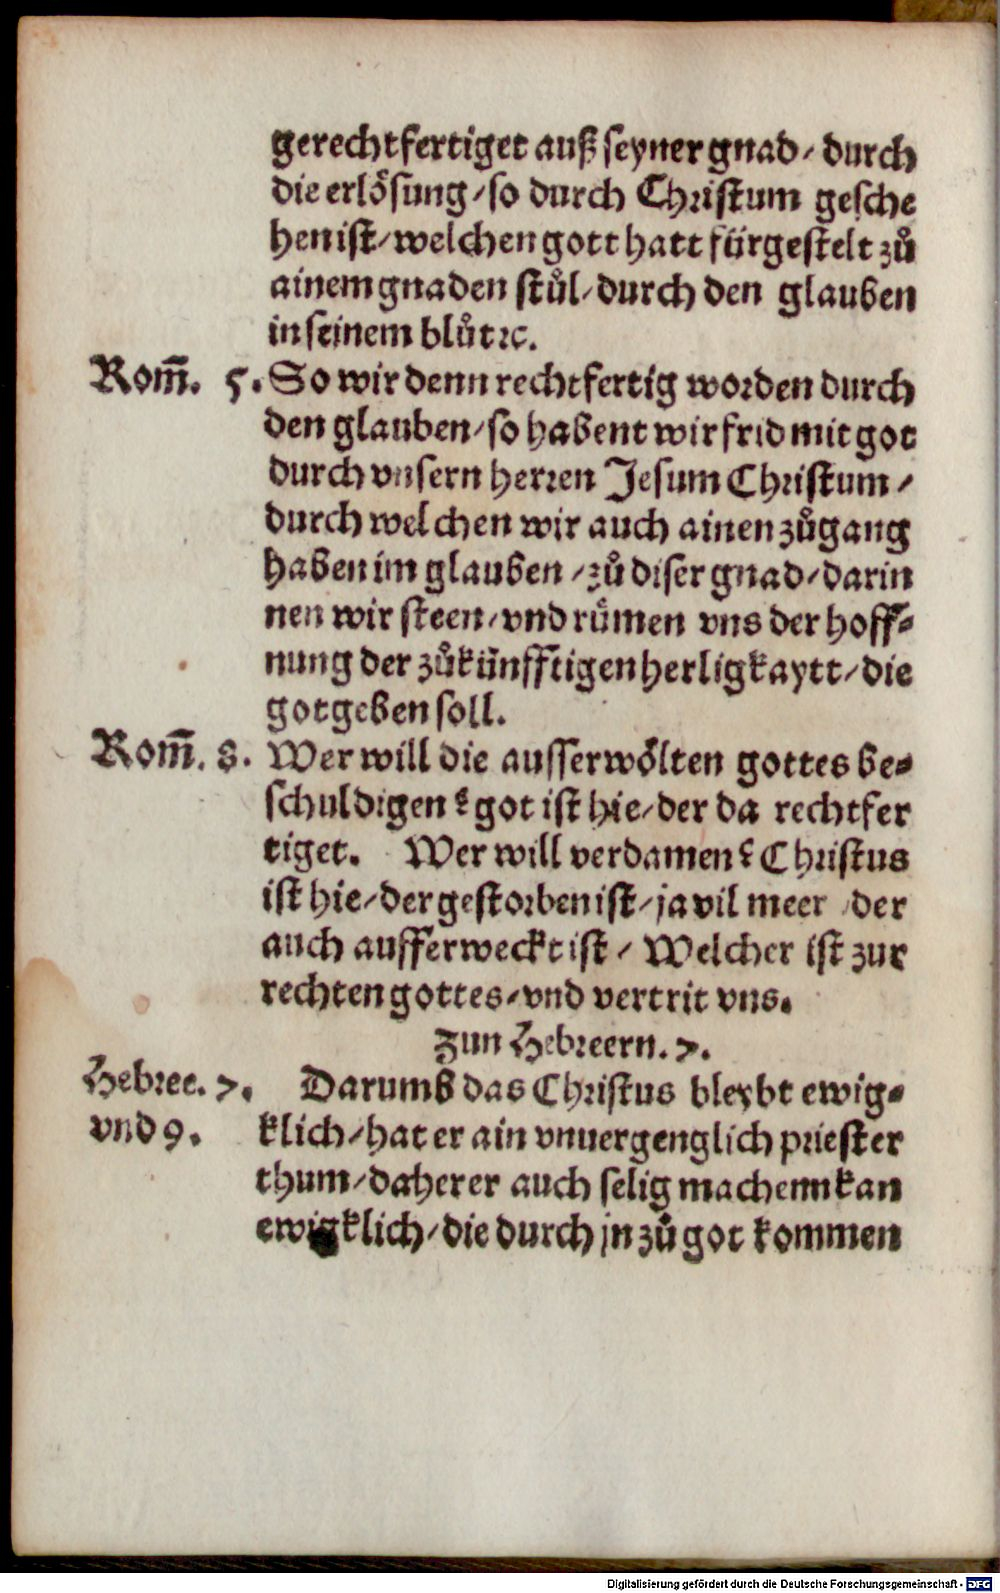 gerechtfertiget auß seyner gnad / durch
die erlösung / so durch Christum gesche
hen ist / welchen gott hatt fürgestelt zů
ainem gnaden stůl / durch den glauben
in seinem blůt ꝛc.
Rom̄. 5. So wir denn rechtfertig worden durch
den glauben / so habent wir frid mit got
durch vnsern herren Jesum Christum /
durch welchen wir auch ainen zůgang
haben im glauben / zů diser gnad / darin
nen wir steen / vnd rümen vns der hoff⸗
nung der zůkünfftigen herligkaytt / die
got geben soll.
Rom̄. 8. Wer will die ausserwölten gottes be⸗
schuldigen? got ist hie / der da rechtfer
tiget. Wer will verdamen? Christus
ist hie / der gestorben ist / ja vil meer / der
auch aufferweckt ist / Welcher ist zur
rechten gottes / vnd vertrit vns.
Zun Hebreern. 7.
Hebree. 7. Darumb das Christus bleybt ewig⸗
vnd 9. klich / hat er ain vnuergenglich priester
thum / daher er auch selig machenn kan
ewigklich / die durch jn zů got kommen
Digitalisierung gefördert durch die Deutsche Forschungsgemeinschaft - DFG